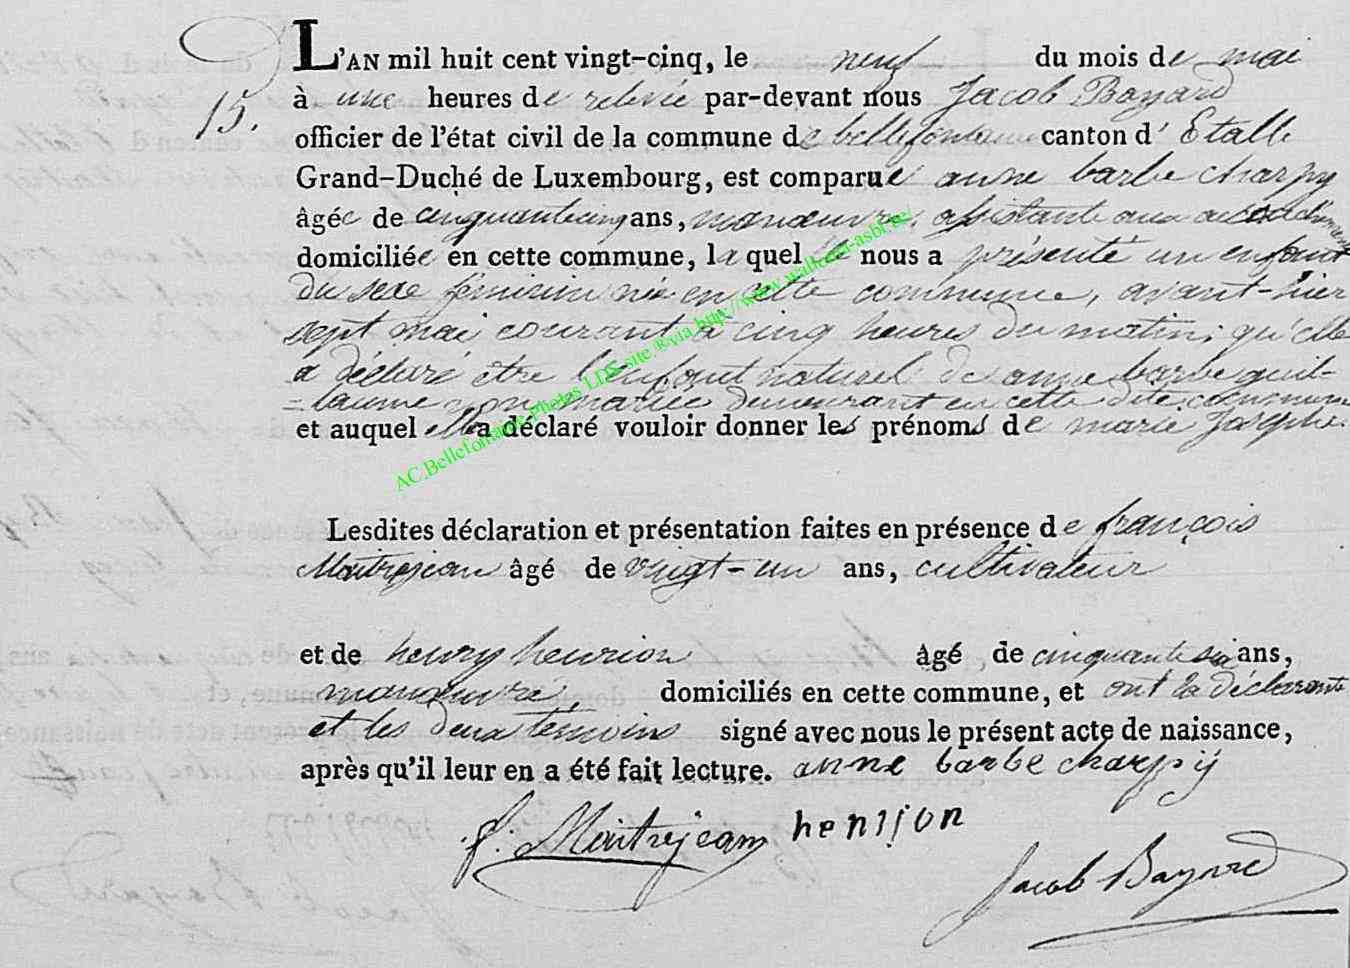 L'AN mil huit cent vingt-cinq, le neuf du mois de mai
15.
à une heures de relevée par-devant nous Jacob Bayard
officier de l'état civil de la commune de bellefontaine canton d' Etalle
Grand-Duché de Luxembourg, est comparue anne barbe charpy
âgée de cinquante cinq ans, manœuvre, assistante aux accouchements
domiciliée en cette commune, la quelle nous a présenté un enfant
du sexe féminin née en cette commune, avant-hier
sept mai courant à cinq heures du matin, qu'elle
a déclaré être l'enfant naturel de anne barbe guil-
-laume non mariée demeurant en cette dite commune
et auquel elle a déclaré vouloir donner les prénoms de marie josephe.
AC.Bellefontaine Photos LDS site ®via http://www.wallonia-asbl.be/
Lesdites déclaration et présentation faites en présence de françois
Maitrejean âgé de vingt-un ans, cultivateur
et de henry henrion âgé de cinquante six ans,
manœuvre, domiciliés en cette commune, et ont la déclarante
et les deux témoins signé avec nous le présent acte de naissance,
après qu'il leur en a été fait lecture. anne barbe charpÿ
f. Maitrejean henrion
Jacob Bayard